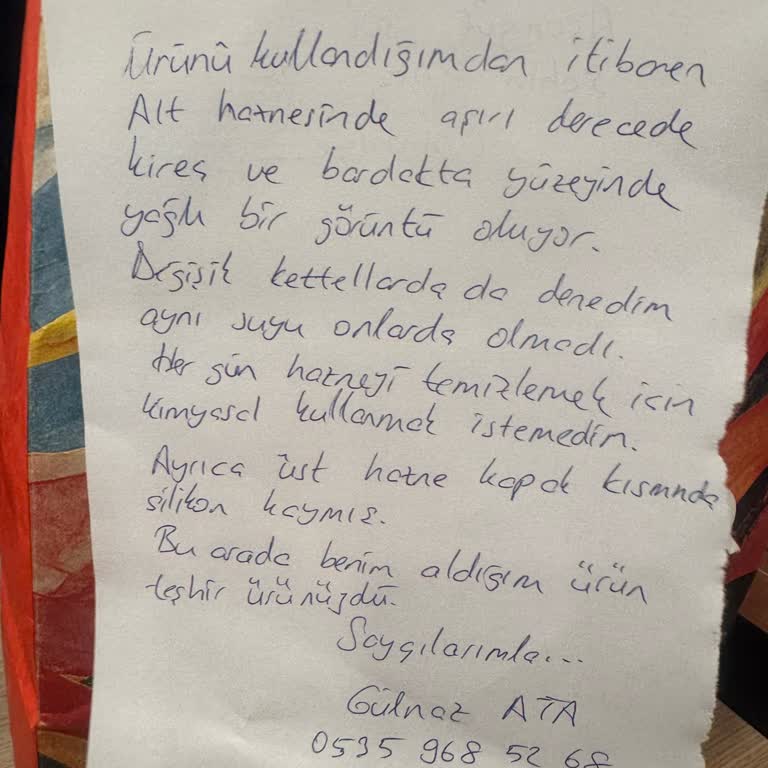 Ürünü kullandığımdan itibaren
Alt haznesinde aşırı derecede
kireç ve bardakta yüzeyinde
yağlı bir görüntü oluyor.
Değişik kettellarda da denedim
aynı suyu onlarda olmadı.
Her gün hazneyi temizlemek için
kimyasal kullanmak istemedim.
Ayrıca üst hazne kapak kısmında
silikon kaymış.
Bu arada benim aldığım ürün
teşhir ürünüzdü.
Saygılarımla...
Gülnaz ATA
0535 968 52 68